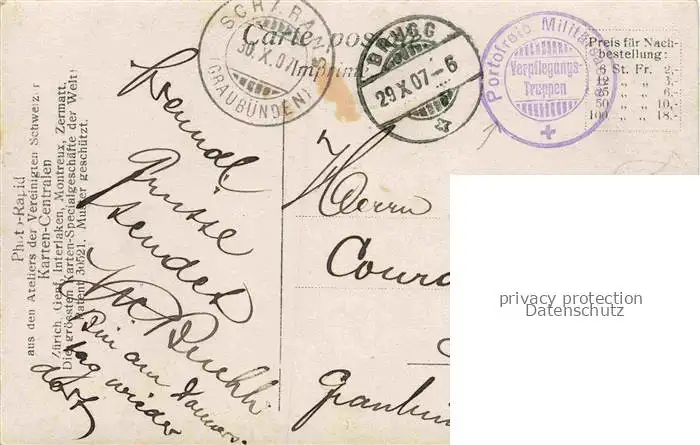 SCHARANS
30.X.07
(GRAUBÜNDEN)
Carte pos
Imprim
BRUGG
29.X.07-6
Portofreie Militärsache
Verpflegungs-
Truppen
Preis für Nach-
bestellung:
6 St. Fr. 2.-
" " 3.-
25 " " 6.-
50 " " 10.-
100 " " 18.-
Photo-Rapid
aus den Ateliers der Vereinigten Schweizer
Karten-Centralen
Zürich, Genf, Interlaken, Montreux, Zermatt.
Die grössten Karten-Specialgeschäfte der Welt.
Patent 30521. Muster geschützt.
Freundl.
Grüsse
sendet
Buehli
Bin am Donners-
tag wieder
dort
Herrn
Courd
Graubün
privacy protection
Datenschutz